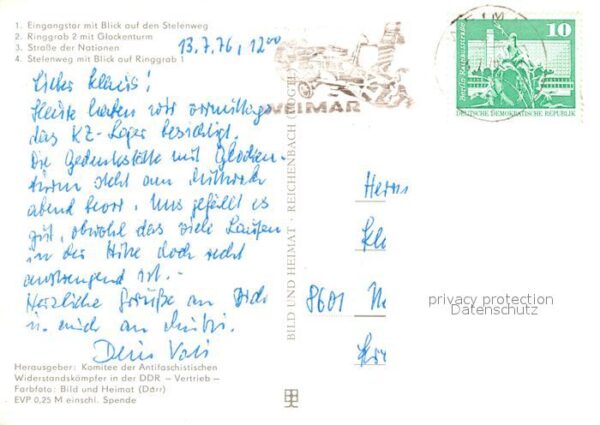 1. Eingangstor mit Blick auf den Stelenweg
2. Ringgrab 2 mit Glockenturm
3. Straße der Nationen
4. Stelenweg mit Blick auf Ringgrab 1
13.7.76, 12⁰⁰
Lieber Klaus!
Heute haben wir vormittags
das KZ-Lager besichtigt.
Die Gedenkstätte mit Glocken-
turm steht am Mittwoch
abend bevor. Uns gefällt es
gut, obwohl das viele Laufen
in der Hitze doch recht
anstrengend ist. -
Herzliche Grüße an Dich
u. auch an
Dein Vati
Herausgeber: Komitee der Antifaschistischen
Widerstandskämpfer in der DDR – Vertrieb –
Farbfoto: Bild und Heimat (Dörr)
EVP 0,25 M einschl. Spende
BILD UND HEIMAT · REICHENBACH
WEIMAR
10
DEUTSCHE DEMOKRATISCHE REPUBLIK
Herrn
Kl
8601
privacy protection
Datenschutz